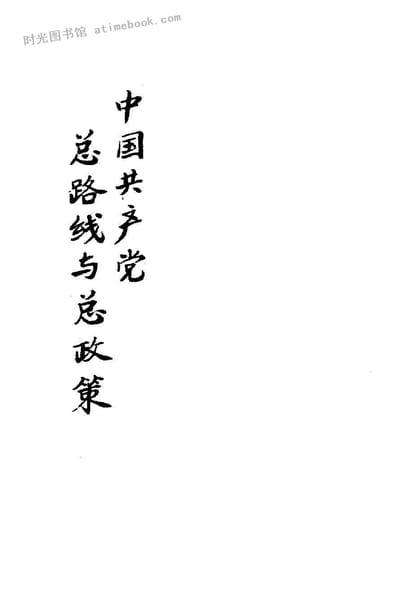 时光图书馆 atimebook.com
中国共产党
总路线与总政策